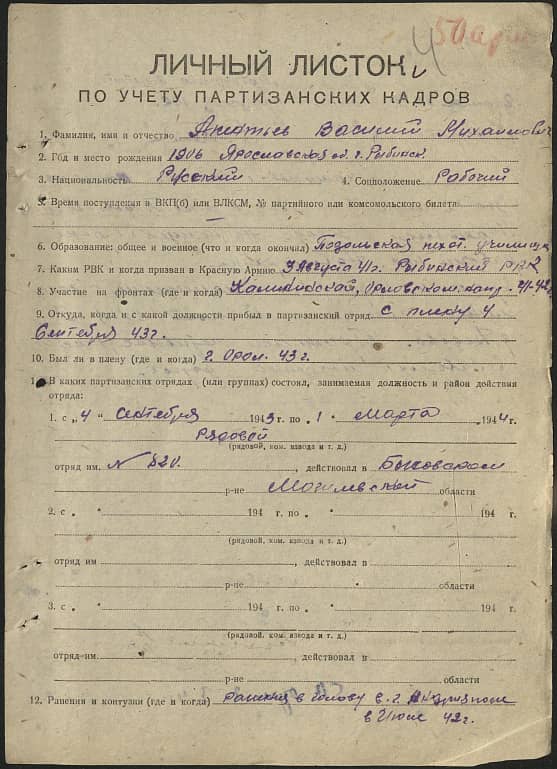 4 50
ЛИЧНЫЙ ЛИСТОК
ПО УЧЕТУ ПАРТИЗАНСКИХ КАДРОВ
1. Фамилия, имя и отчество Василий Михайлович
2. Год и место рождения 1906 Ярославская об. г. Рыбинск
3. Национальность Русский 4. Соцположение Рабочий
5. Время поступления в ВКП(б) или ВЛКСМ, № партийного или комсомольского билета
—
6. Образование: общее и военное (что и когда окончил) Подольская пехот. училище
7. Каким РВК и когда призван в Красную Армию 3 Августа 41 г. Рыбинский РВК
8. Участие на фронтах (где и когда) Калининский, 41-42
9. Откуда, когда и с какой должности прибыл в партизанский отряд с плену 4
Сентября 43 г.
10. Был ли в плену (где и когда) г. Орол. 43 г.
11. В каких партизанских отрядах (или группах) состоял, занимаемая должность и район действия
отряда:
1. с „4“ Сентября 1943 г. по „1“ Марта 1944 г.
Рядовой
(рядовой, ком. взвода и т. д.)
отряд им. N 820. , действовал в
р-не Могилевской области
2. с „ “ 194 г. по „ “ 194 г.
(рядовой, ком. взвода и т. д.)
отряд им , действовал в
р-не области
3. с „ “ 194 г. по „ “ 194 г.
(рядовой, ком. взвода и т. д.)
отряд им. , действовал в
р-не области
12. Ранения и контузии (где и когда) в голову в г.
в Июле 42 г.